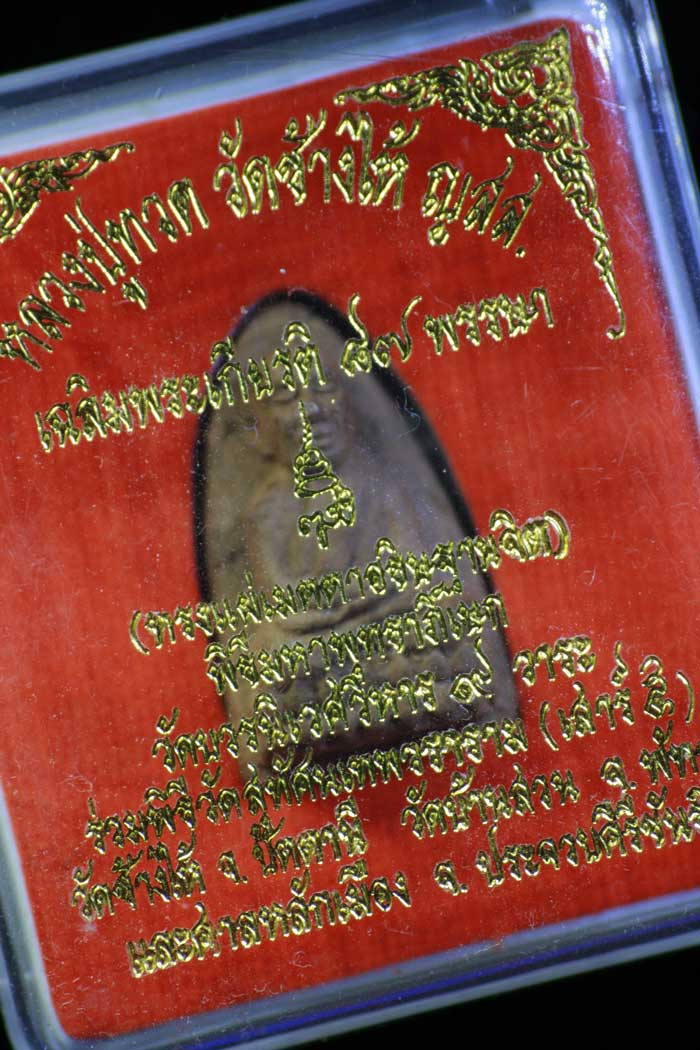 หลวงปู่ทวด วัดช้างให้ ญสส.
เฉลิมพระเกียรติ ๘๗ พรรษา
(ทรงแผ่เมตตาอธิษฐานจิต)
พิธีมหาพุทธาภิเษก
วัดบวรนิเวศวิหาร ๑๙ วาระ
ร่วมพิธีวัดสุทัศนเทพวราราม (เสาร์ ๕)
วัดช้างให้ จ.ปัตตานี วัดบ้านสวน จ.พัท
และศาลหลักเมือง จ.ประจวบคีรีขัน